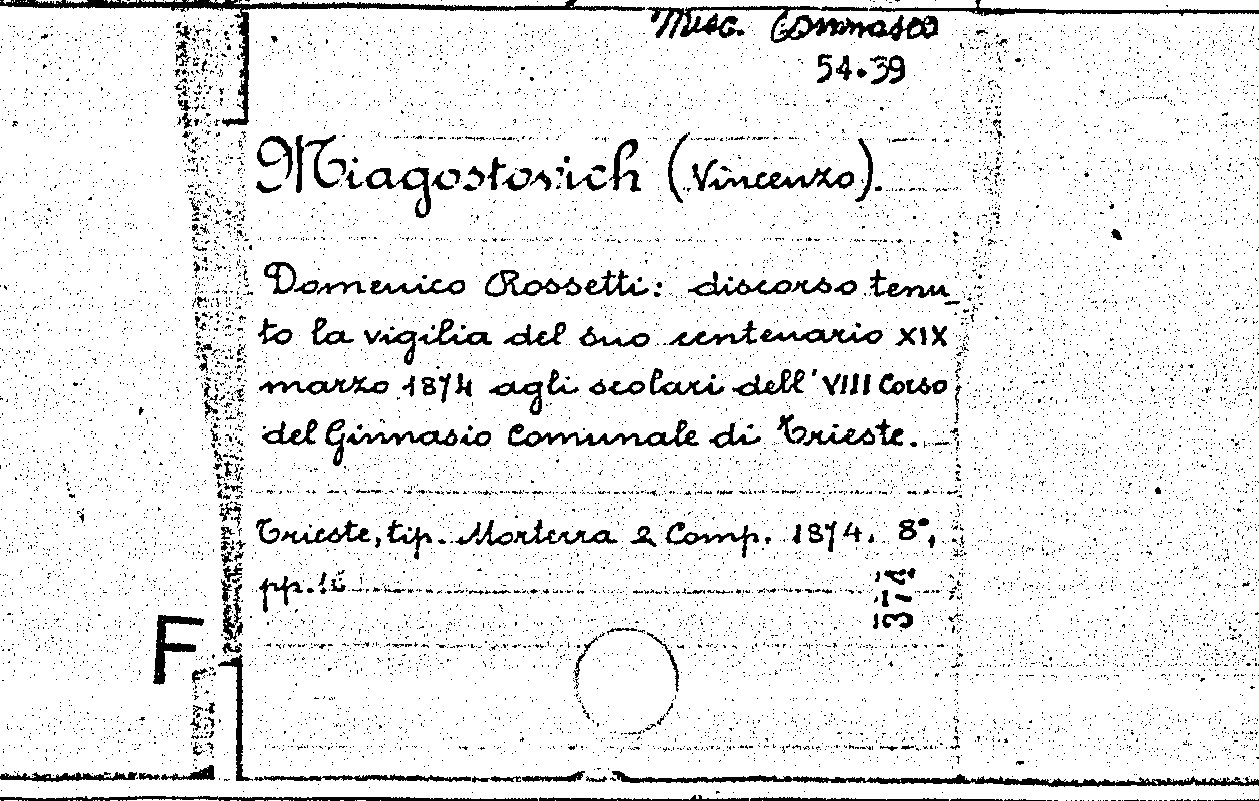 Misc. Tommaseo
54.39
Miagostovich (Vincenzo).
Domenico Rossetti: discorso tenu_
to la vigilia del suo centenario XIX
marzo 1874 agli scolari dell' VIII Corso
del Ginnasio Comunale di Trieste.
Trieste, tip. Morterra & Comp. 1874. 8°,
pp.
374
F